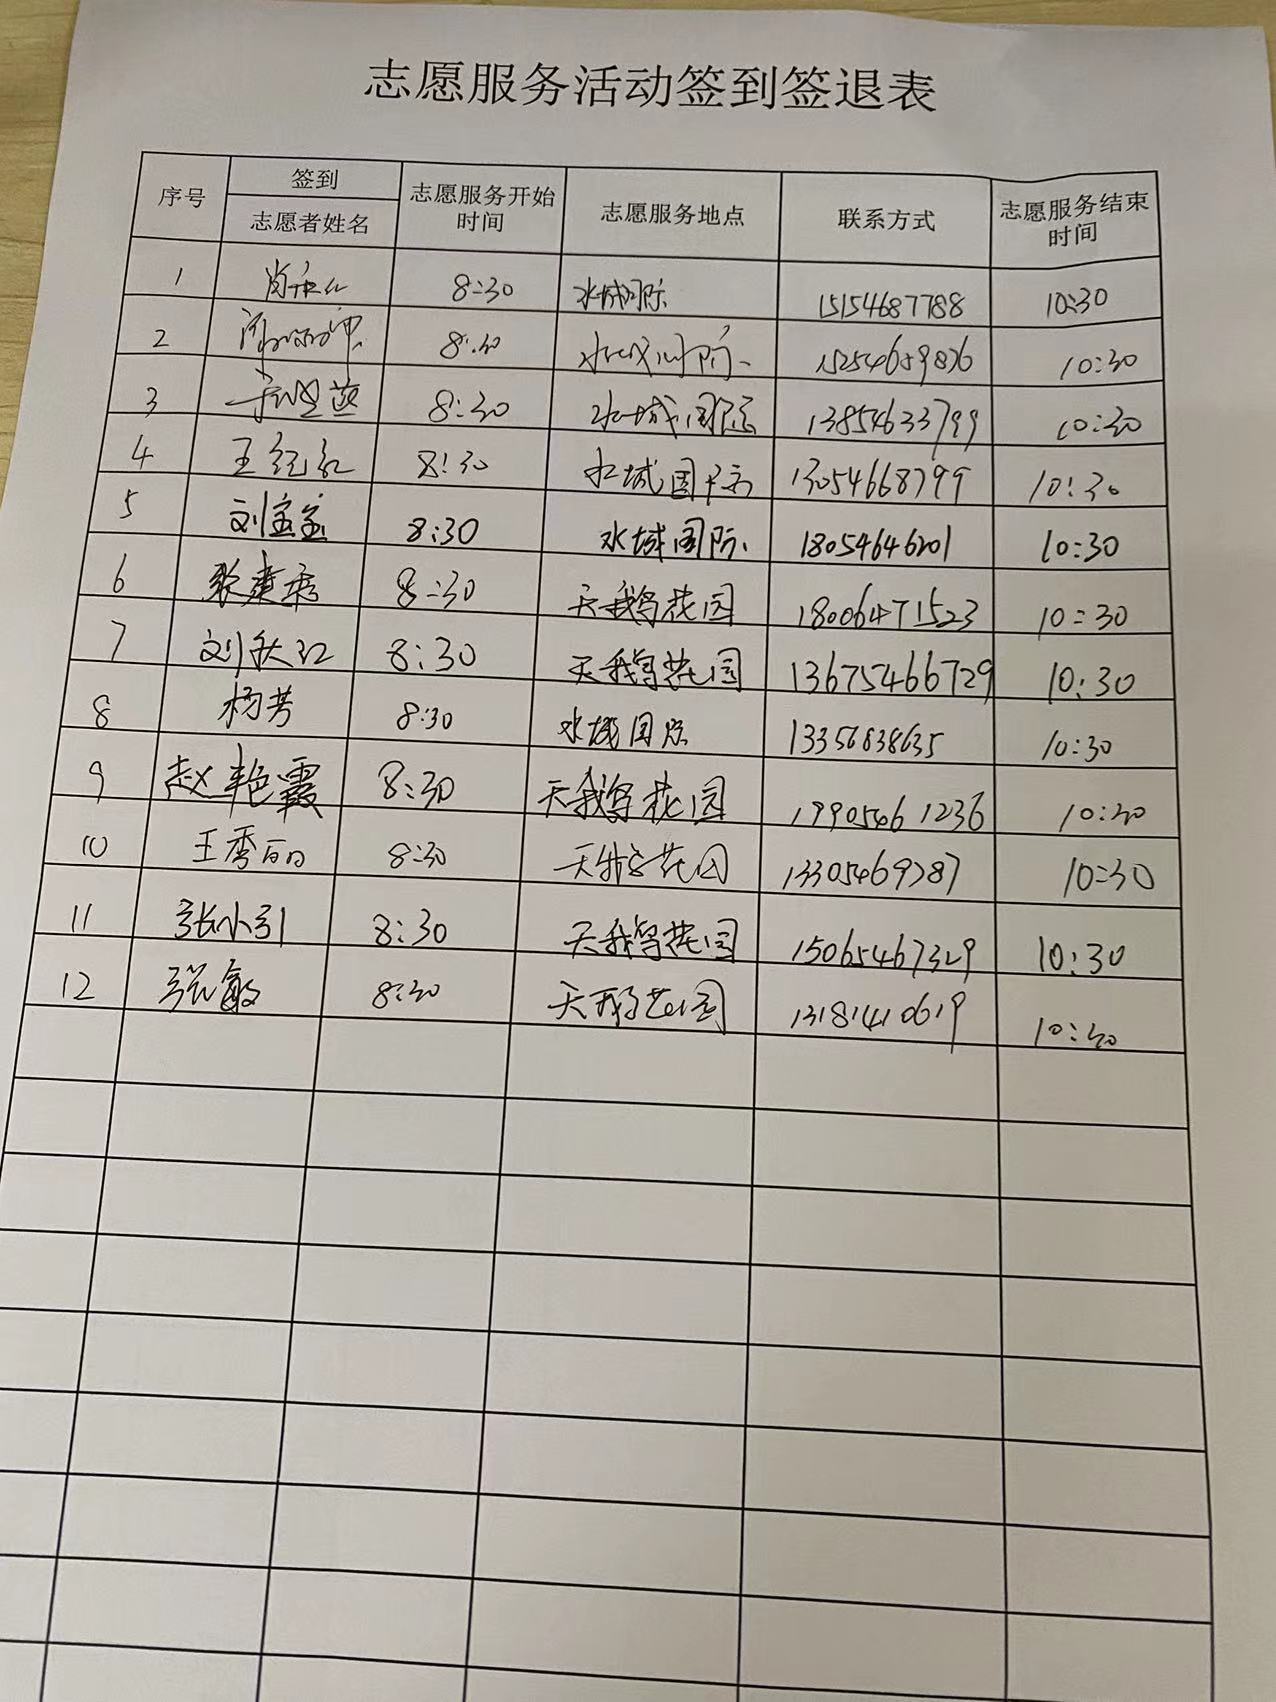 志愿服务活动签到签退表
序号 签到 志愿者姓名 志愿服务开始时间 志愿服务地点 联系方式 志愿服务结束时间
1 8:30 水城国际 15154687788 10:30
2 8:30 水城国际 15254659876 10:30
3 8:30 水城国际 13854633799 10:30
4 王纪红 8:30 水城国际 13054668799 10:30
5 刘宝宝 8:30 水城国际 18054646201 10:30
6 张建秀 8:30 天鹅花园 18006471523 10:30
7 刘秋红 8:30 天鹅花园 13675466729 10:30
8 杨芳 8:30 水城国际 13356838635 10:30
9 赵艳霞 8:30 天鹅花园 19905461236 10:30
10 王秀丽 8:30 天鹅花园 13305469787 10:30
11 张小引 8:30 天鹅花园 15065467329 10:30
12 张敏 8:30 天鹅花园 13181410619 10:30